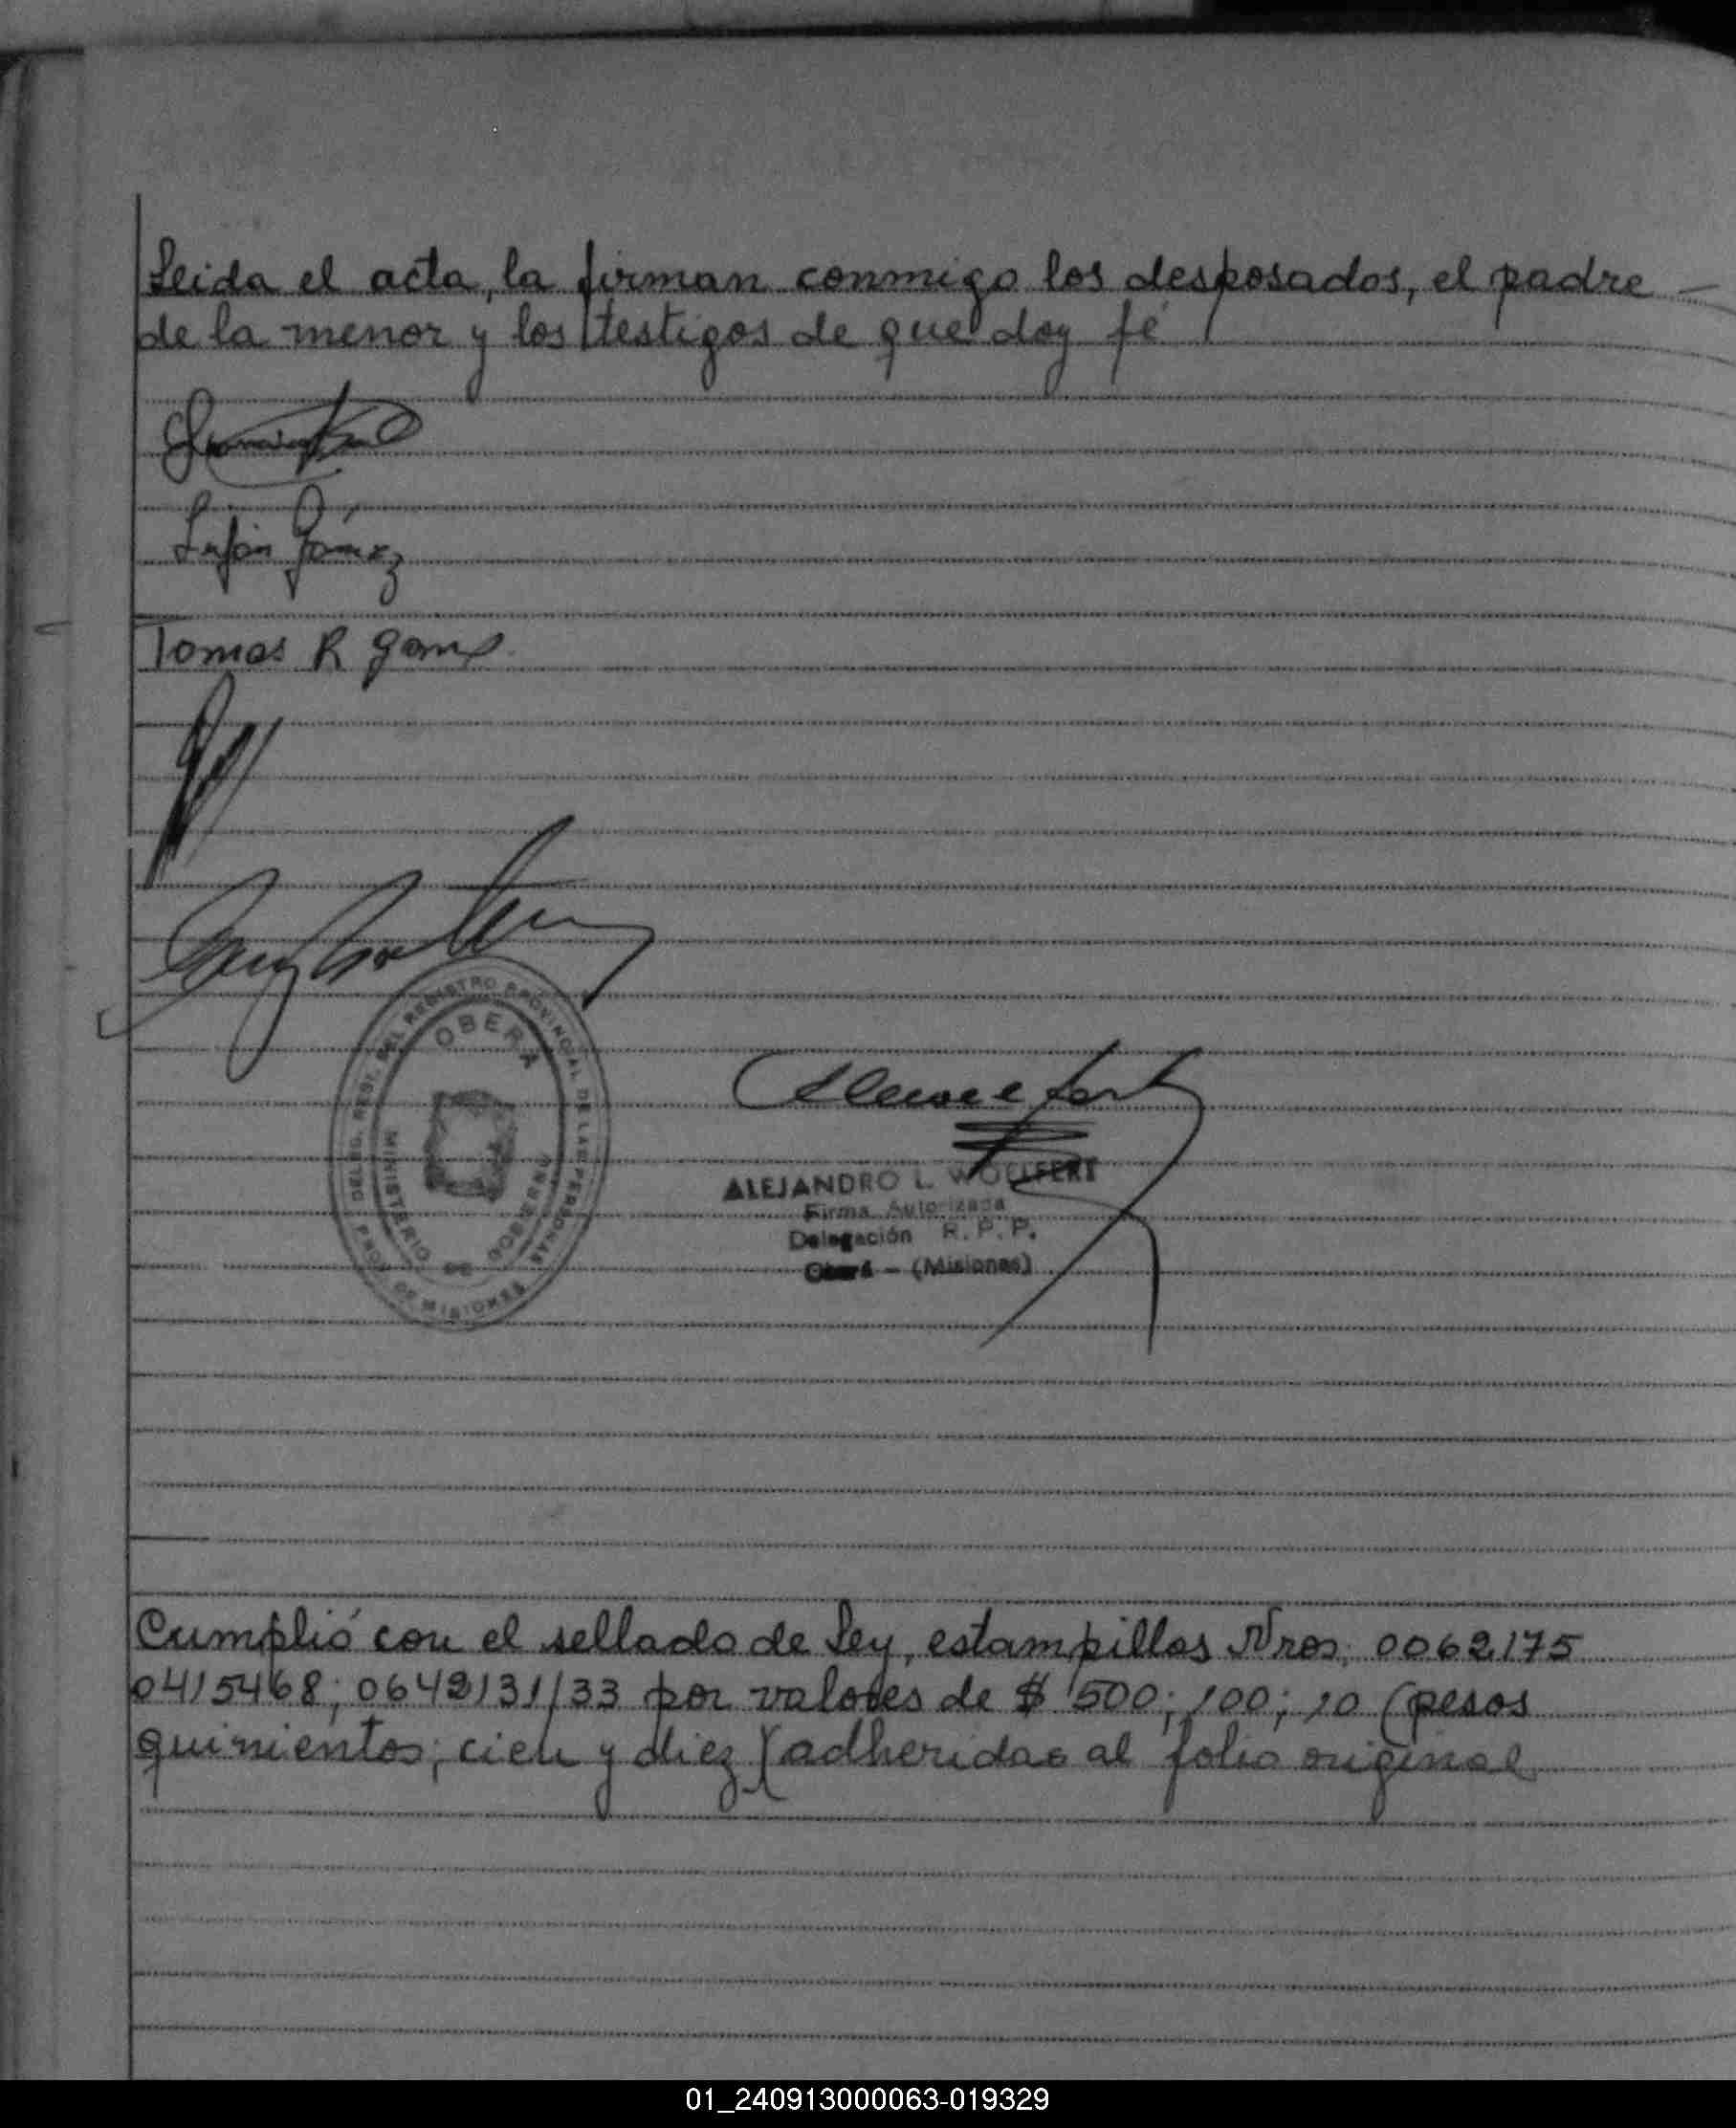 Leida el acta, la firman conmigo los desposados, el padre —
de la menor y los testigos de que doy fé
Luján Gómez
Tomas R Gomez
DELEG. REST. DEL REGISTRO PROVINCIAL DE LAS PERSONAS
OBERÁ
MINISTERIO DE GOBIERNO
PROV. DE MISIONES
ALEJANDRO L. WOLFFERT
Firma Autorizada
Delegación R. P. P.
Oberá - (Misiones)
Cumplió con el sellado de Ley, estampillas Nros; 0062175
0415468; 0642131/33 por valores de $ 500; 100; 10 (pesos
quinientos; cien y diez) adheridas al folio original
01_240913000063-019329